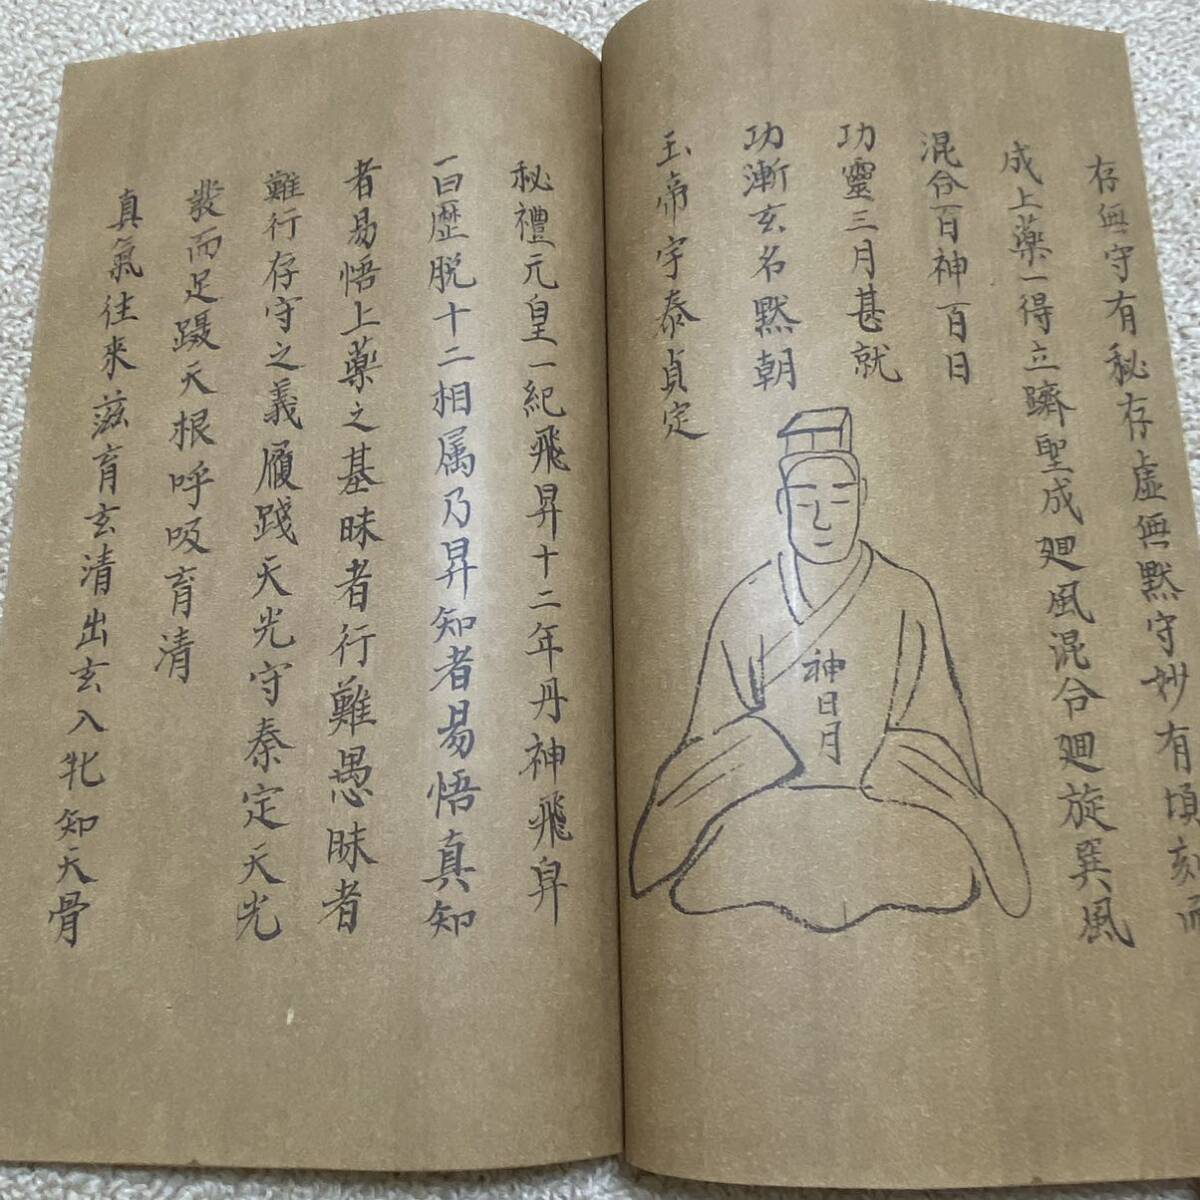 存無守有秘存虛無默守妙有頃刻而
成上藥一得立躋聖成廻風混合廻旋巽風
混合百神百日
功靈三月甚就
功漸玄名默朝
玉帝宇泰貞定
神日月
秘禮元皇一紀飛昇十二年丹神飛昇
一白歷脱十二相属乃昇知者易悟真知
者易悟上藥之基昧者行難愚昧者
難行存守之義履踐天光守泰定天光
發而足躡天根呼吸育清
真氣往来滋育玄清出玄入牝知天骨